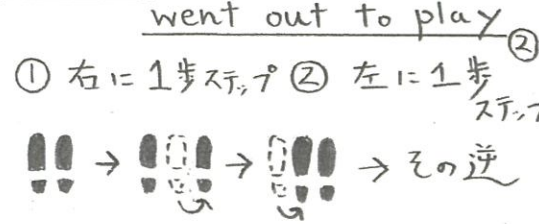 went out to play ②
① 右に1歩ステップ ② 左に1歩
ステップ
→ → → その逆